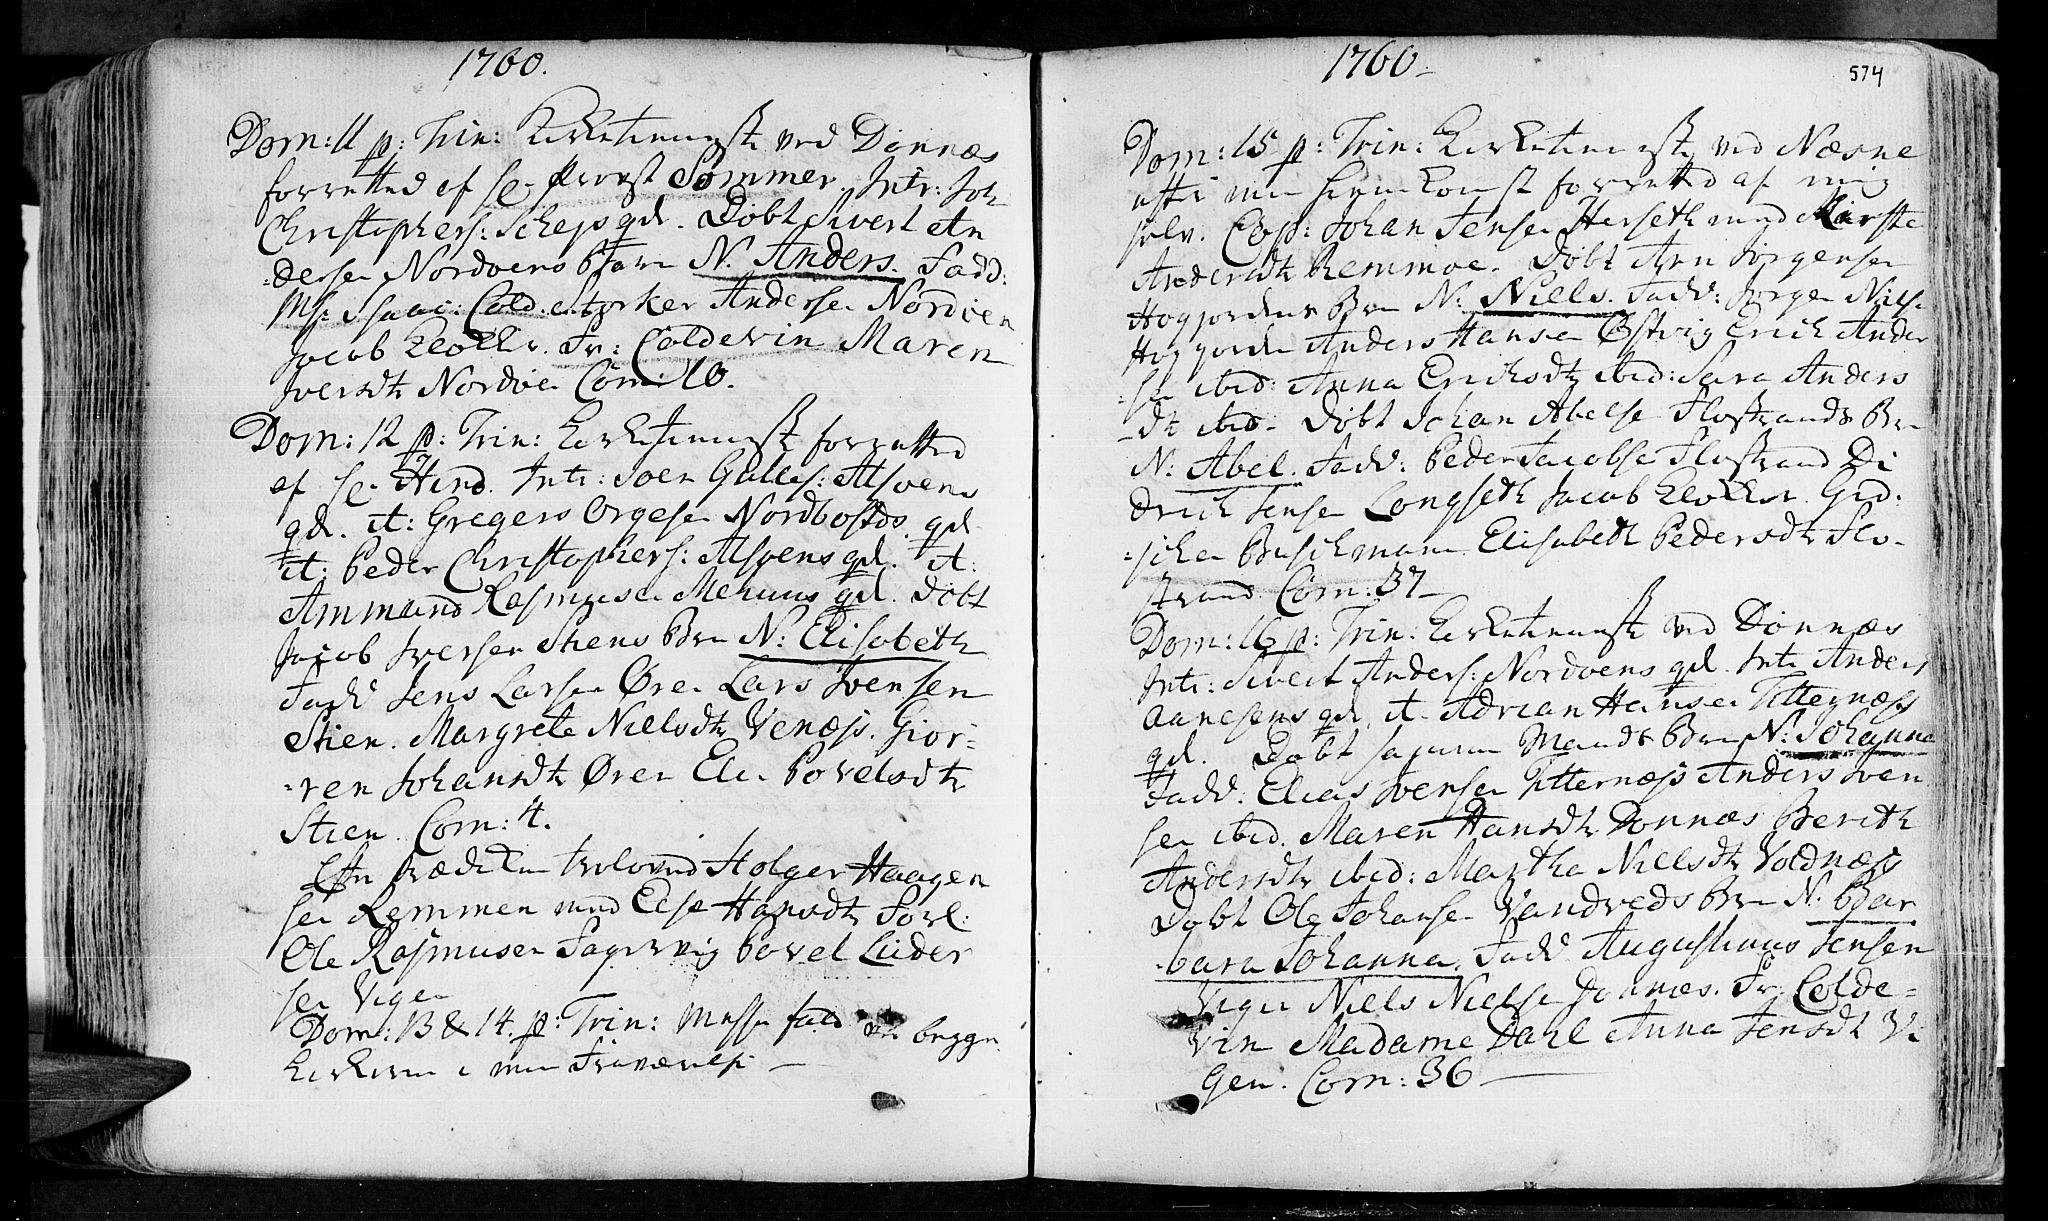 1760.
Dom: 11 p: Trin: Kirketieniste ved Dönnæs
forretted af Hr. Provst Sommer. Intr: Joh
Christophers: Scheis qd. Döbt Sivert An
-dersen Nordvens Barn N. Anders. Fadd:
Ms: Isaac: Cold. Storker Andersen Nordvien
Jacob Klokker. Fr: Coldevin Maren
Iversdtr Nordvie Com: 10.
Dom: 12 p: Trin: Kirketienist forretted
af Hr Hind. Intr: Soen Gulles: Alsvens
qd. it: Gregers Orgesen Nordbostds. qd
it: Peder Christophers: Alsvens qd. it:
Ammund Rasmusen Mehuus qd. Döbt
Jacob Iversen Stiens Brn N: Elisabeth
Fadd Jens Larsen Øren Lars Ivensen
Stien. Margrete Nielsdtr Venæss. Giør-
-ren Johansdtr Øren Elen Povelsdtr
Stien. Com: 4.
Eftr Prædiken troloved Holger Haagen
sen Remmen med Else Hansdtr Forl:
Ole Rasmusen Fagervig Povel Lüder
sen Vigen
Dom: 13 & 14. p: Trin: Messe fald ved begge
Kirkerne i min Fraværelse
1760
574
Dom: 15 p: Trin: Kirketieniste ved Næsne
efter min Hiemkomst forrettd af mig
selv. Cop: Johan Jensen Herseth med Kirste
Andersdtr Remmoe. Döbt Arn Jörgensen
Hogjordens Brn N: Niels. Fadd: Jörgen Nilse
Hogjorden Anders Hansen Østvig Erich Ander
-sen ibid: Anna Erichsdtr ibid: Sara Anders
-dtr ibid. Döbt Johan Abelse Flostrands Brn
N: Abel. Fadd: Peder Jacobse Flostrand Di
drich Jensen Longseth Jacob Klokker. Gid:
-siken Buschmann. Elisabeth Pedersdtr Flo-
strand. Com: 37
Dom: 16 p: Trin: Kirketieniste ved Dönnæs
Intr: Sivert Anders: Nordvens qd. Intr Anders
Aanesens qd. it. Adrian Hansen Titternæss
qd. Döbt samme Mands Brn N: Johanna
Fadd: Elias Ivensen Titternæss Anders Iven
sen ibid. Maren Hansdtr Donnæs Berith
Andersdtr ibid: Martha Nielsdtr Voldnæss
Döbt Ole Johansen Vandveds Brn N: Bar
-bara Johanna. Fadd Augustinus Jensen
Vigen Niels Nielse Donnæs. Fr: Colde-
vin Madame Dahl Anna Jensdtr Vi
gen. Com: 36